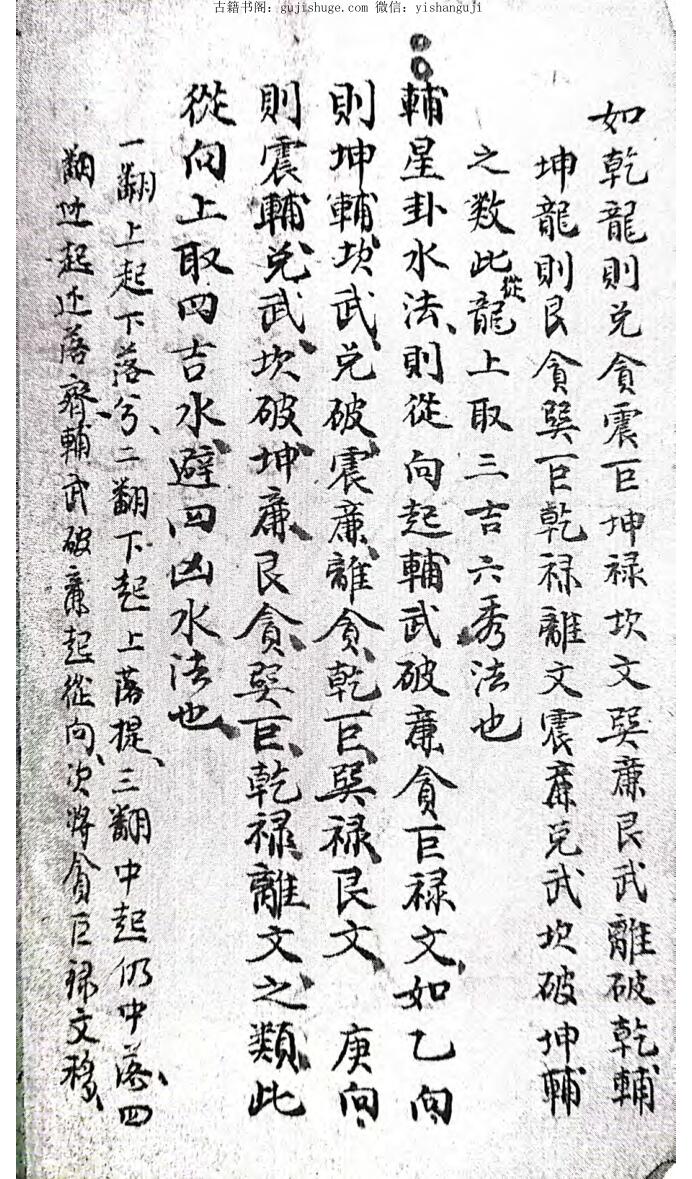 古籍书阁：gujishuge.com 微信：yishanguji
如乾龍則兑貪震巨坤禄坎文巽廉艮武離破乾輔
坤龍則艮貪巽巨乾禄離文震廉兑武坎破坤輔
之数此從龍上取三吉六秀法也
輔星卦水法、則從向起輔武破廉貪巨禄文、如乙向
則坤輔坎武兑破震廉離貪乾巨巽禄艮文、庚向
則震輔兑武、坎破坤廉、艮貪、巽巨、乾禄離文之類、此
從向上取四吉水避四凶水法也、
一翻上起下落兮、二翻下起上落提、三翻中起仍中落、四
翻边起边落齊、輔武破廉起從向、次将貪巨禄文移、